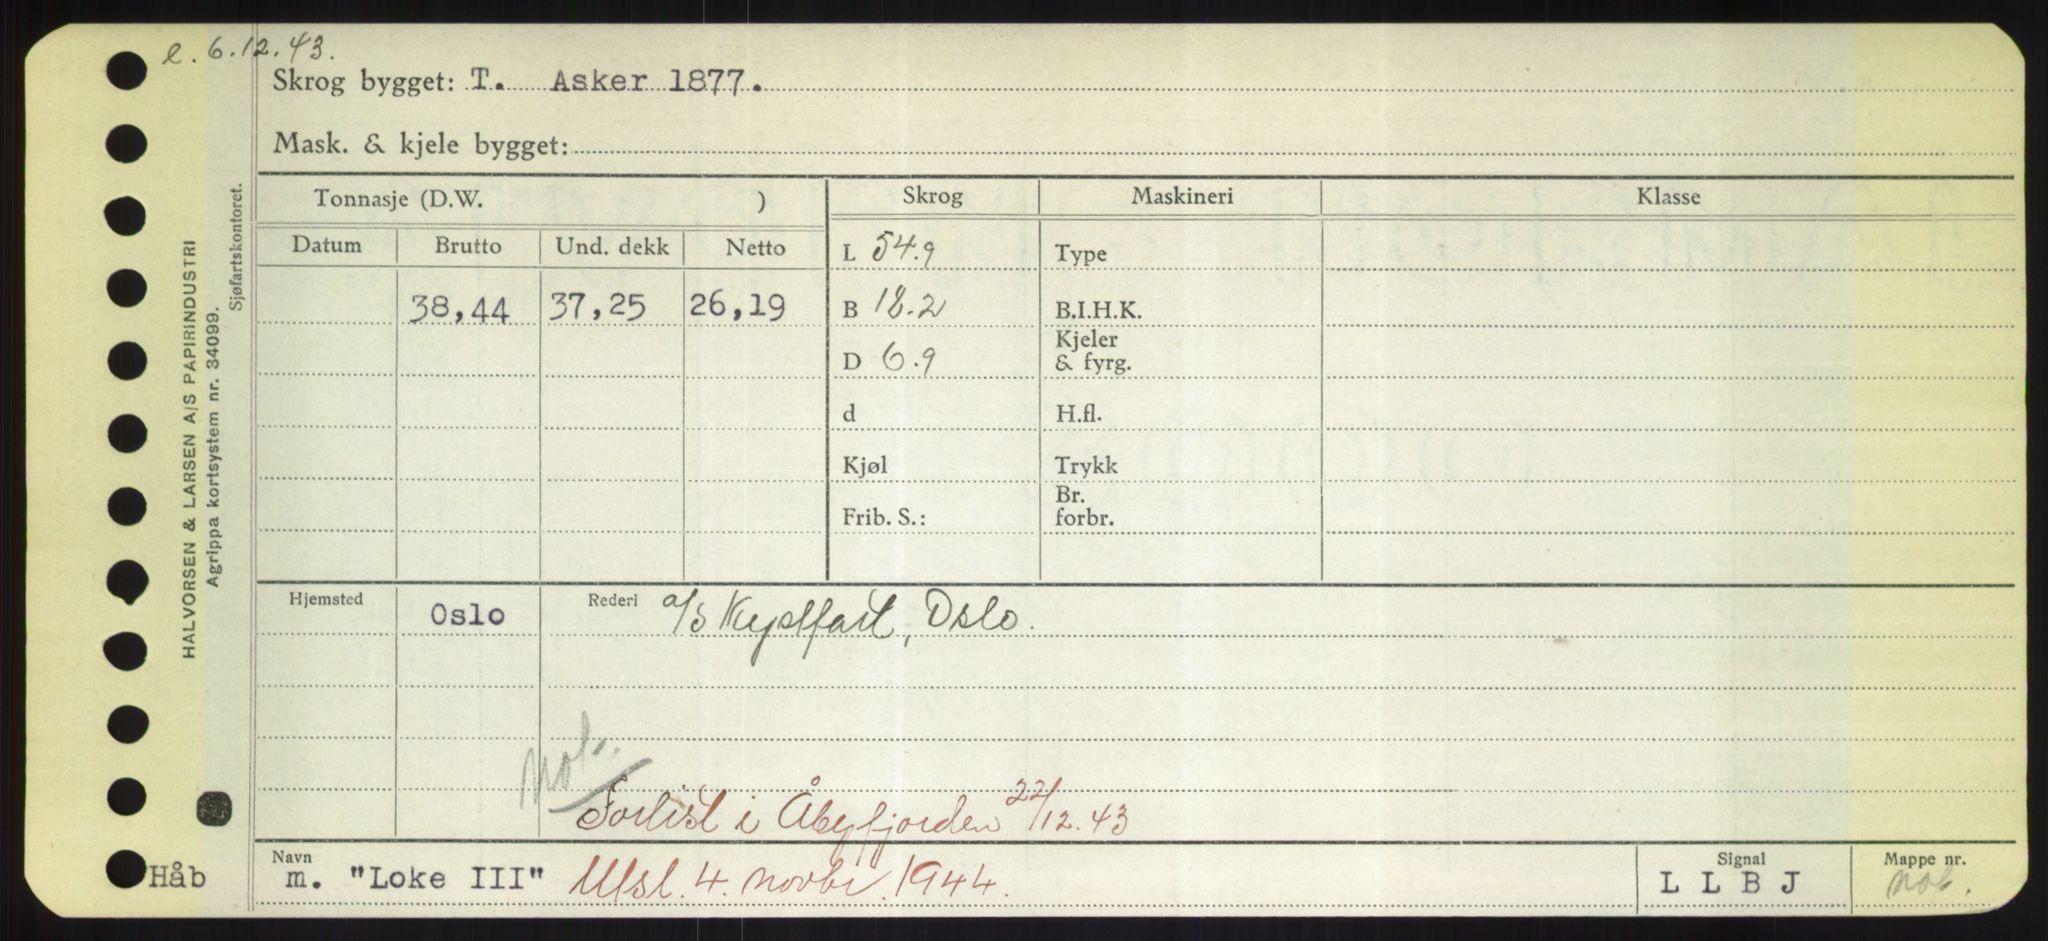 e. 6.12.43.
Skrog bygget: T. Asker 1877.
Mask. & kjele bygget:
Tonnasje (D.W. )
Skrog Maskineri Klasse
Datum Brutto Und. dekk Netto
L 54.9 Type
38,44 37,25 26,19
B 18.2 B.I.H.K.
D 6.9 Kjeler
& fyrg.
d H.fl.
Kjøl Trykk
Br.
Frib. S.: forbr.
Hjemsted Oslo Rederi a/s Kystfart, Oslo.
not.
Forlist i Åbyfjorden 22/12.43
Håb
Navn
m. "Loke III" Utsl. 4. novbr. 1944.
Signal
L L B J
Mappe nr.
not.
HALVORSEN & LARSEN A/S PAPIRINDUSTRI
Agrippa kortsystem nr. 34099.
Sjøfartskontoret.